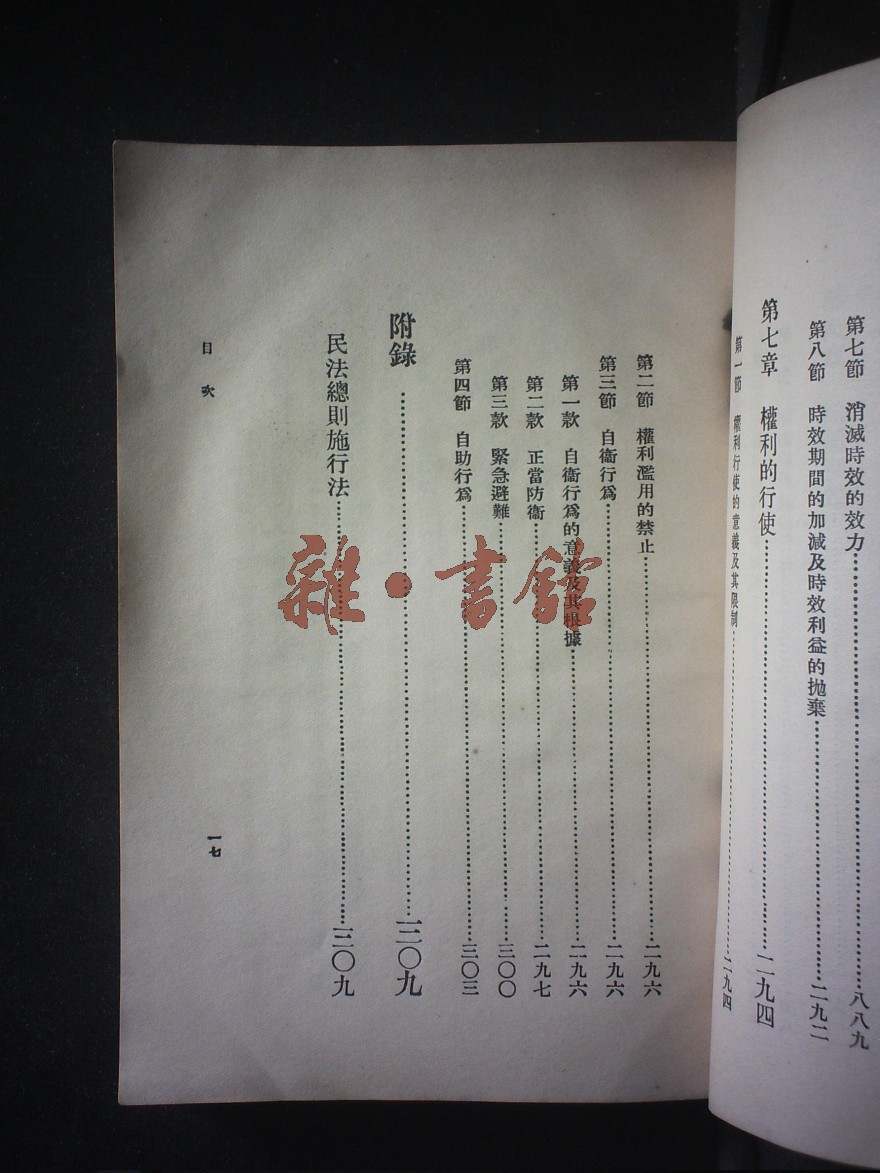 第七節　消滅時效的效力……八八九
第八節　時效期間的加減及時效利益的拋棄……二九二
第七章　權利的行使……二九四
第一節　權利行使的意義及其限制……二九四
第二節　權利濫用的禁止……二九六
第三節　自衞行爲……二九六
第一款　自衞行爲的意義及其根據……二九六
第二款　正當防衞……二九七
第三款　緊急避難……三〇〇
第四節　自助行爲……三〇三
附錄……三〇九
民法總則施行法……三〇九
目次
一七
雜·書館